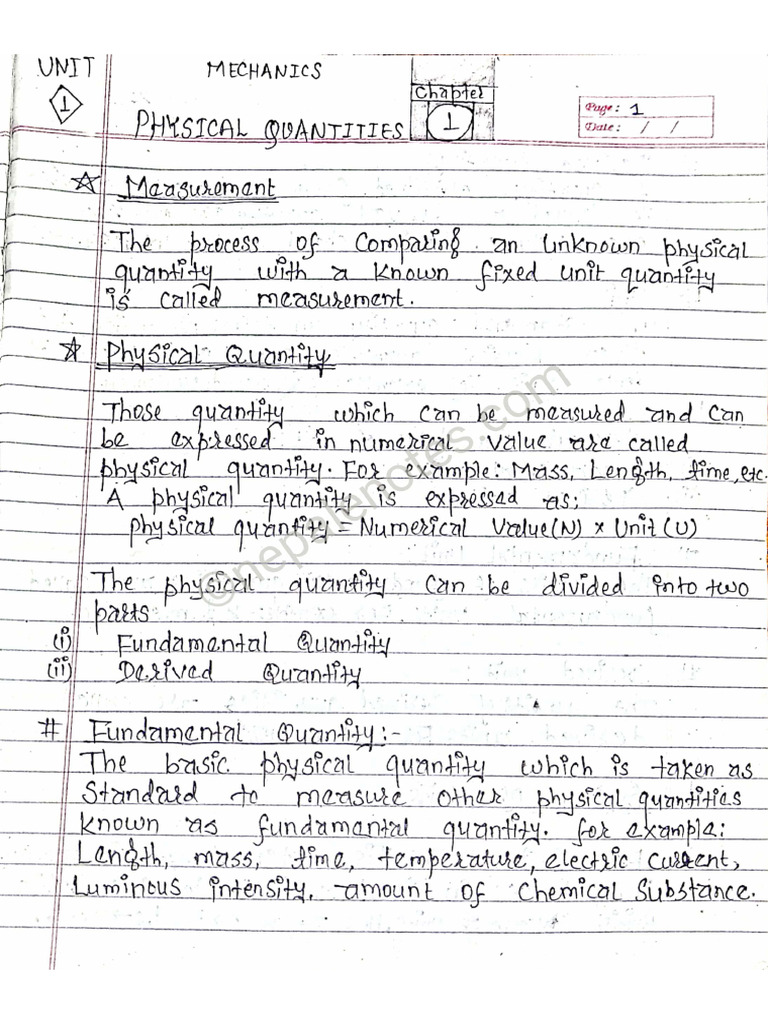 UNIT MECHANICS
1 Chapter
PHYSICAL QUANTITIES 1
Page: 1
Date: / /
☆ Measurement
The process of comparing an unknown physical
quantity with a known fixed unit quantity
is called measurement.
☆ Physical Quantity
Those quantity which can be measured and can
be expressed in numerical value are called
physical quantity. For example: Mass, Length, time, etc.
A physical quantity is expressed as;
physical quantity = Numerical Value(N) × Unit (U)
The physical quantity can be divided into two
parts
(i) Fundamental Quantity
(ii) Derived Quantity
# Fundamental Quantity:-
The basic physical quantity which is taken as
Standard to measure other physical quantities
known as fundamental quantity. for example:
Length, mass, time, temperature, electric current,
Luminous intensity, amount of Chemical Substance.
©nepalenotes.com